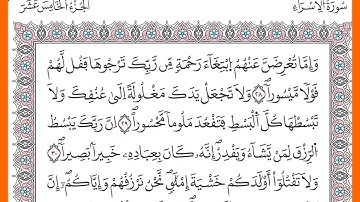 سُورَةُ الإِسْرَاءِ
الجُزْءُ الخَامِسَ عَشَرَ
وَإِمَّا تُعْرِضَنَّ عَنْهُمُ ابْتِغَآءَ رَحْمَةٍ مِّن رَّبِّكَ تَرْجُوهَا فَقُل لَّهُمْ
قَوْلًا مَّيْسُورًا ٢٨ وَلَا تَجْعَلْ يَدَكَ مَغْلُولَةً إِلَىٰ عُنُقِكَ وَلَا
تَبْسُطْهَا كُلَّ الْبَسْطِ فَتَقْعُدَ مَلُومًا مَّحْسُورًا ٢٩ إِنَّ رَبَّكَ يَبْسُطُ
الرِّزْقَ لِمَن يَشَآءُ وَيَقْدِرُ إِنَّهُ كَانَ بِعِبَادِهِ خَبِيرًا بَصِيرًا ٣٠
وَلَا تَقْتُلُوا أَوْلَٰدَكُمْ خَشْيَةَ إِمْلَٰقٍ نَّحْنُ نَرْزُقُهُمْ وَإِيَّاكُمْ إِنَّ